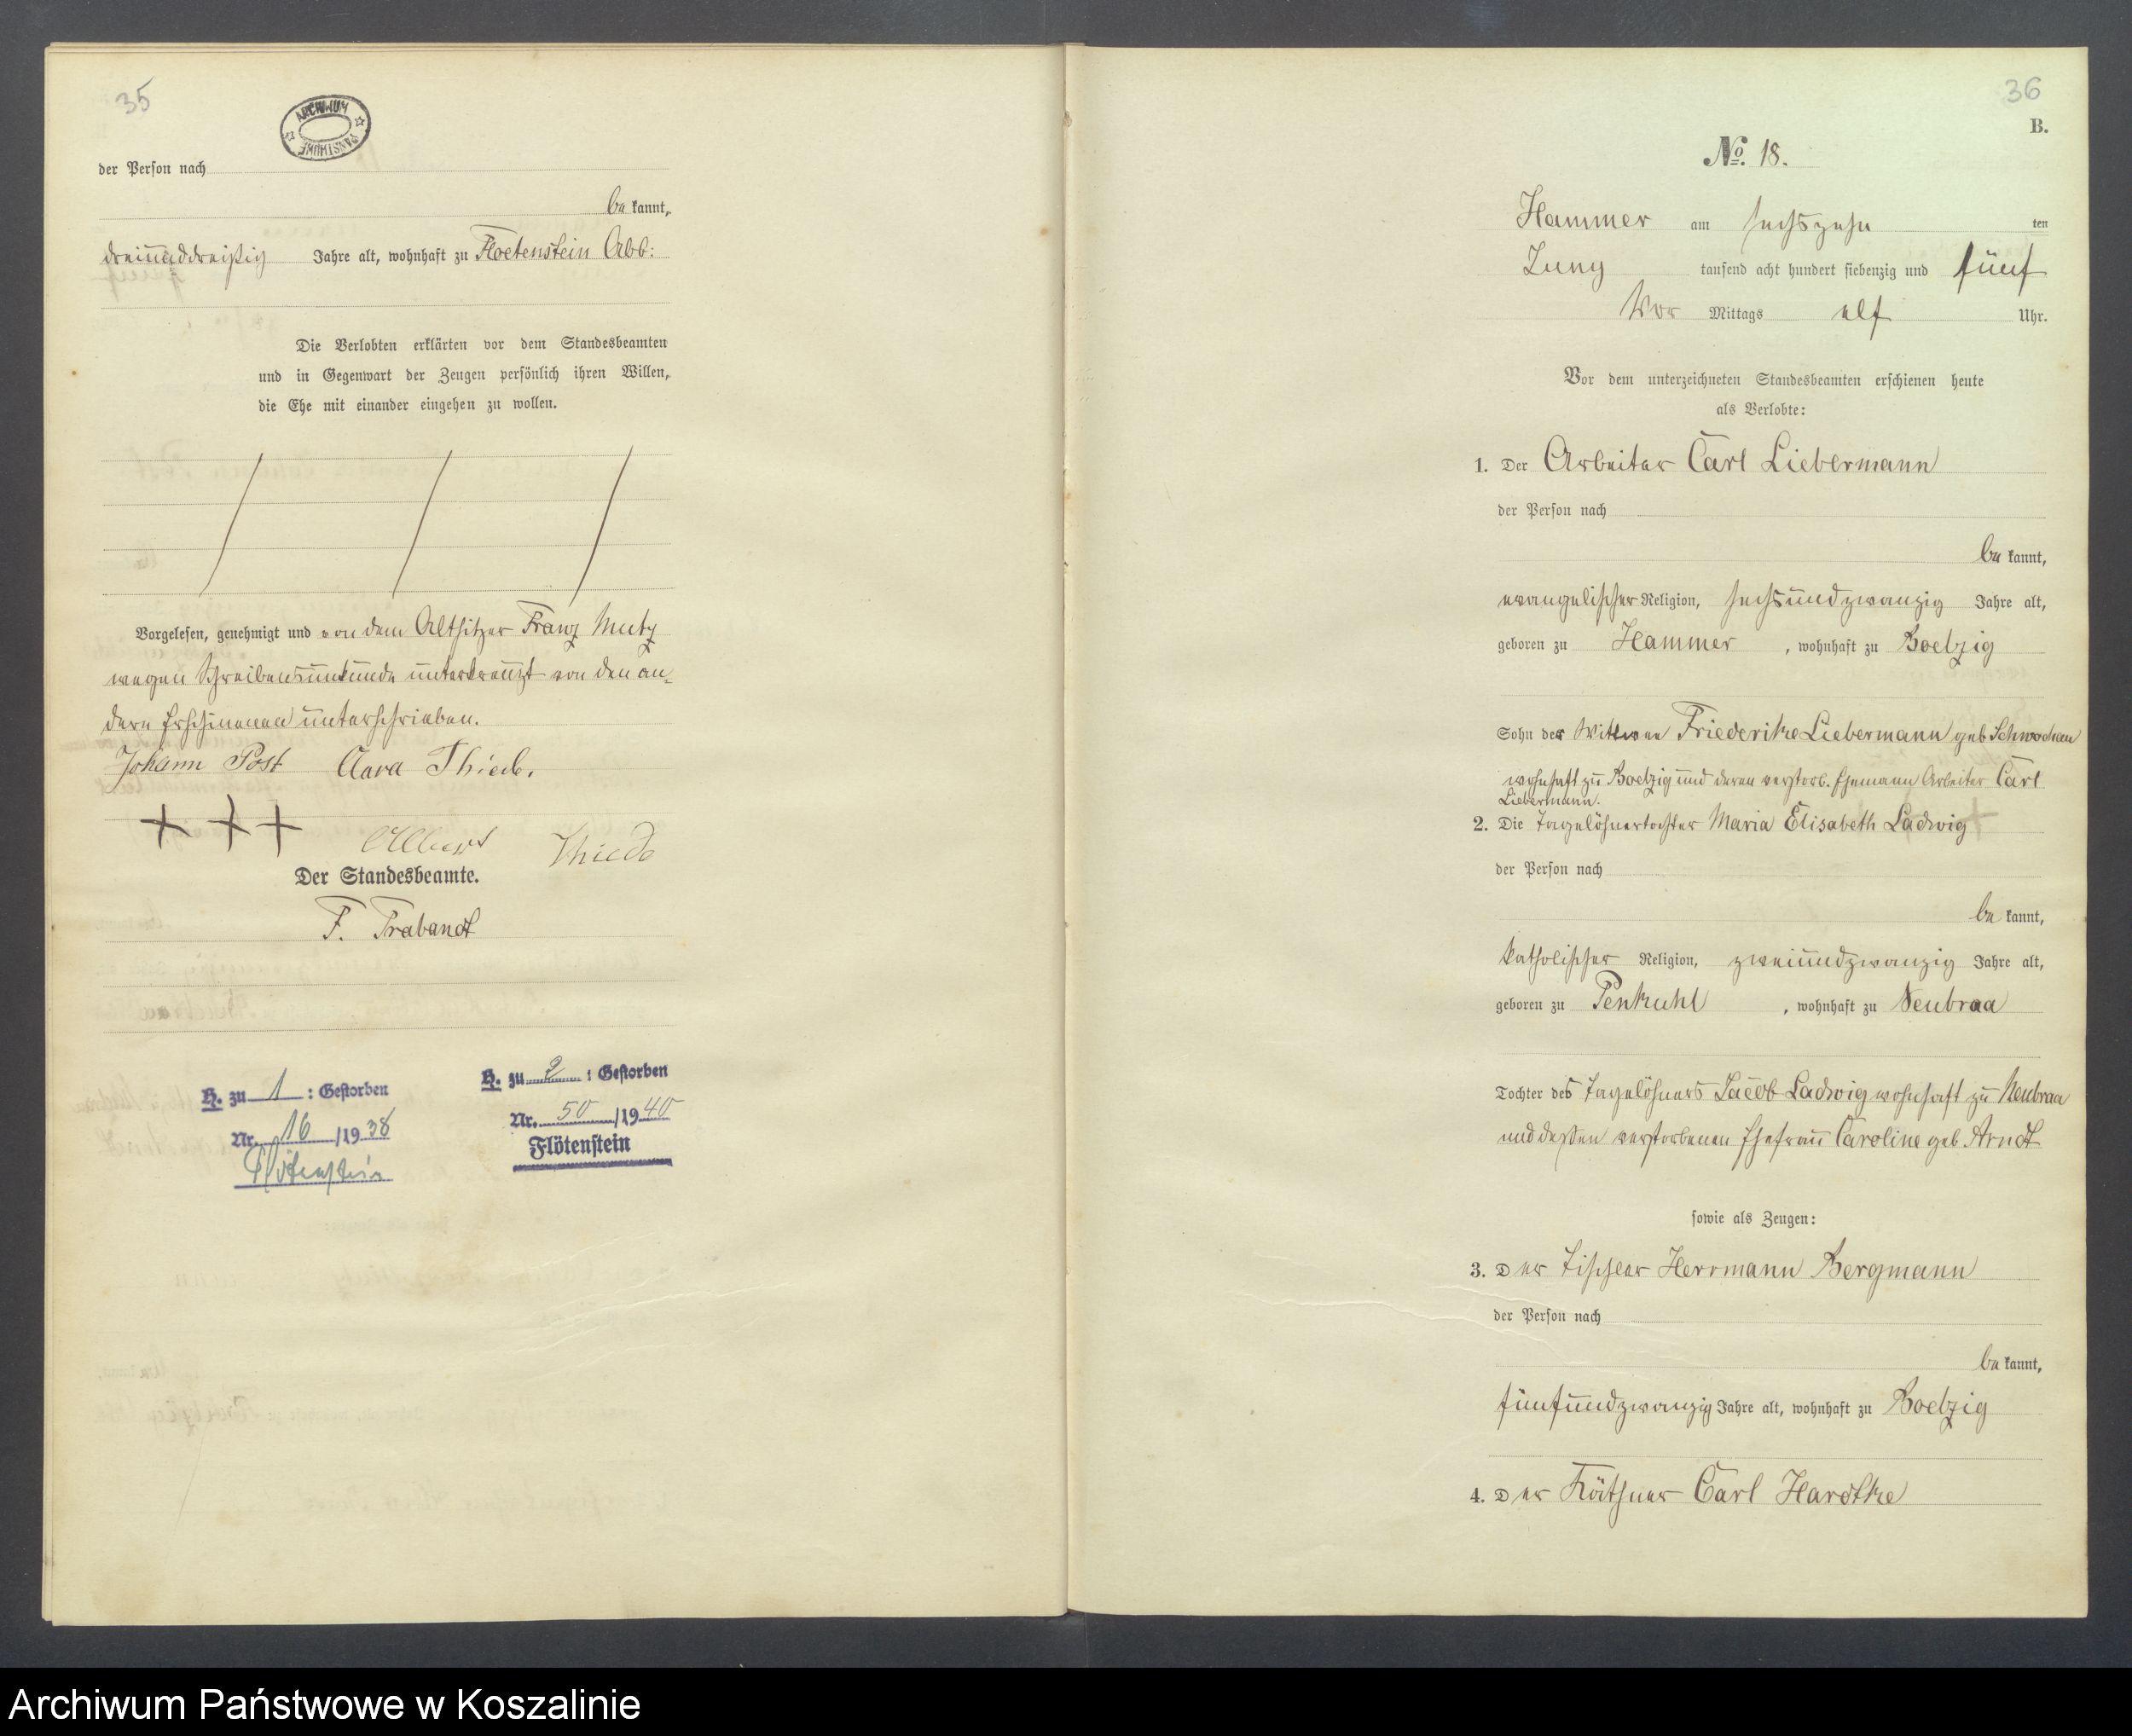 35
ARCHIWUM PAŃSTWOWE
der Person nach
be kannt,
dreiunddreißig Jahre alt, wohnhaft zu Floetenstein Abb:
Die Verlobten erklärten vor dem Standesbeamten
und in Gegenwart der Zeugen persönlich ihren Willen,
die Ehe mit einander eingehen zu wollen.
Vorgelesen, genehmigt und von dem Altsitzer Franz Mutz
wegen Schreibensunkunde unterkreuzt von den an-
dern Erschienenen unterschrieben.
Johann Post Clara Thied.
+ + +
Albert Thiede
Der Standesbeamte.
F. Trabandt
H. zu 1 : Gestorben
Nr. 16 /19 38
Flötenstein
H. zu 2 : Gestorben
Nr. 50 /19 40
Flötenstein
36
B.
No. 18.
Hammer am sechszehn ten
Juny tausend acht hundert siebenzig und fünf
Vor Mittags elf Uhr.
Vor dem unterzeichneten Standesbeamten erschienen heute
als Verlobte:
1. Der Arbeiter Carl Liebermann
der Person nach
be kannt,
evangelischer Religion, sechsundzwanzig Jahre alt,
geboren zu Hammer , wohnhaft zu Boelzig
Sohn der Wittwe Friederike Liebermann geb Schwochau
wohnhaft zu Boelzig und deren verstorb. Ehemann Arbeiter Carl
Liebermann.
2. Die Tagelöhnertochter Maria Elisabeth Ladwig
der Person nach
be kannt,
katholischer Religion, zweiundzwanzig Jahre alt,
geboren zu Penkuhl , wohnhaft zu Neubraa
Tochter des Tagelöhners Jacob Ladwig wohnhaft zu Neubraa
und dessen verstorbenen Ehefrau Caroline geb. Arndt
sowie als Zeugen:
3. Der Tischler Herrmann Bergmann
der Person nach
be kannt,
fünfundzwanzig Jahre alt, wohnhaft zu Boelzig
4. Der Käthner Carl Hardtke
Archiwum Państwowe w Koszalinie